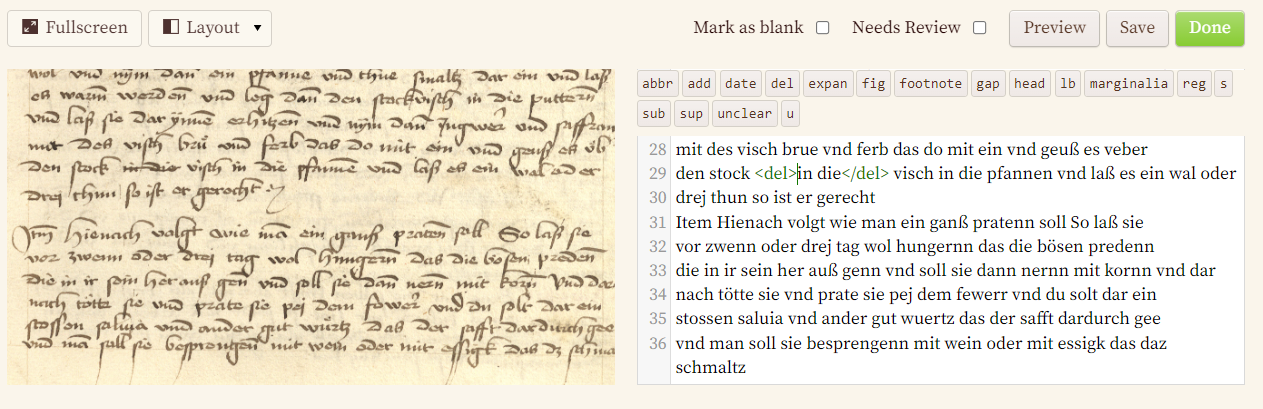 Fullscreen
Layout
Mark as blank
Needs Review
Preview
Save
Done
wol vnd nym dan ein pfanne vnd thue smaltz dar ein vnd laß
es warm werden vnd leg dan den stockvisch in die puttern
vnd laß sie dar ynne erhitzen vnd nym dan Ingwer vnd saffran
mit des visch brue vnd ferb das do mit ein vnd geuß es vb
den stock in die visch in die pfanne vnd laß es ein wal oder
drej thun so ist er gerecht
Itm Hienach volgt wie ma ein ganß praten soll So laß sie
vor zwenn oder drej tag wol hungern das die bosen preden
die in ir sein her auß gen vnd soll sie dan nern mit korn vnd dar
nach totte sie vnd prate sie pej dem fewer vnd du solt dar ein
stossen saluia vnd ander gut wurtz das der safft dardurch gee
vnd ma soll sie besprengen mit wein oder mit essigk das dz schma
abbr add date del expan fig footnote gap head lb marginalia reg s
sub sup unclear u
28 mit des visch brue vnd ferb das do mit ein vnd geuß es veber
29 den stock <del>in die</del> visch in die pfannen vnd laß es ein wal oder
30 drej thun so ist er gerecht
31 Item Hienach volgt wie man ein ganß pratenn soll So laß sie
32 vor zwenn oder drej tag wol hungernn das die bösen predenn
33 die in ir sein her auß genn vnd soll sie dann nernn mit kornn vnd dar
34 nach tötte sie vnd prate sie pej dem fewerr vnd du solt dar ein
35 stossen saluia vnd ander gut wuertz das der safft dardurch gee
36 vnd man soll sie besprengenn mit wein oder mit essigk das daz
schmaltz